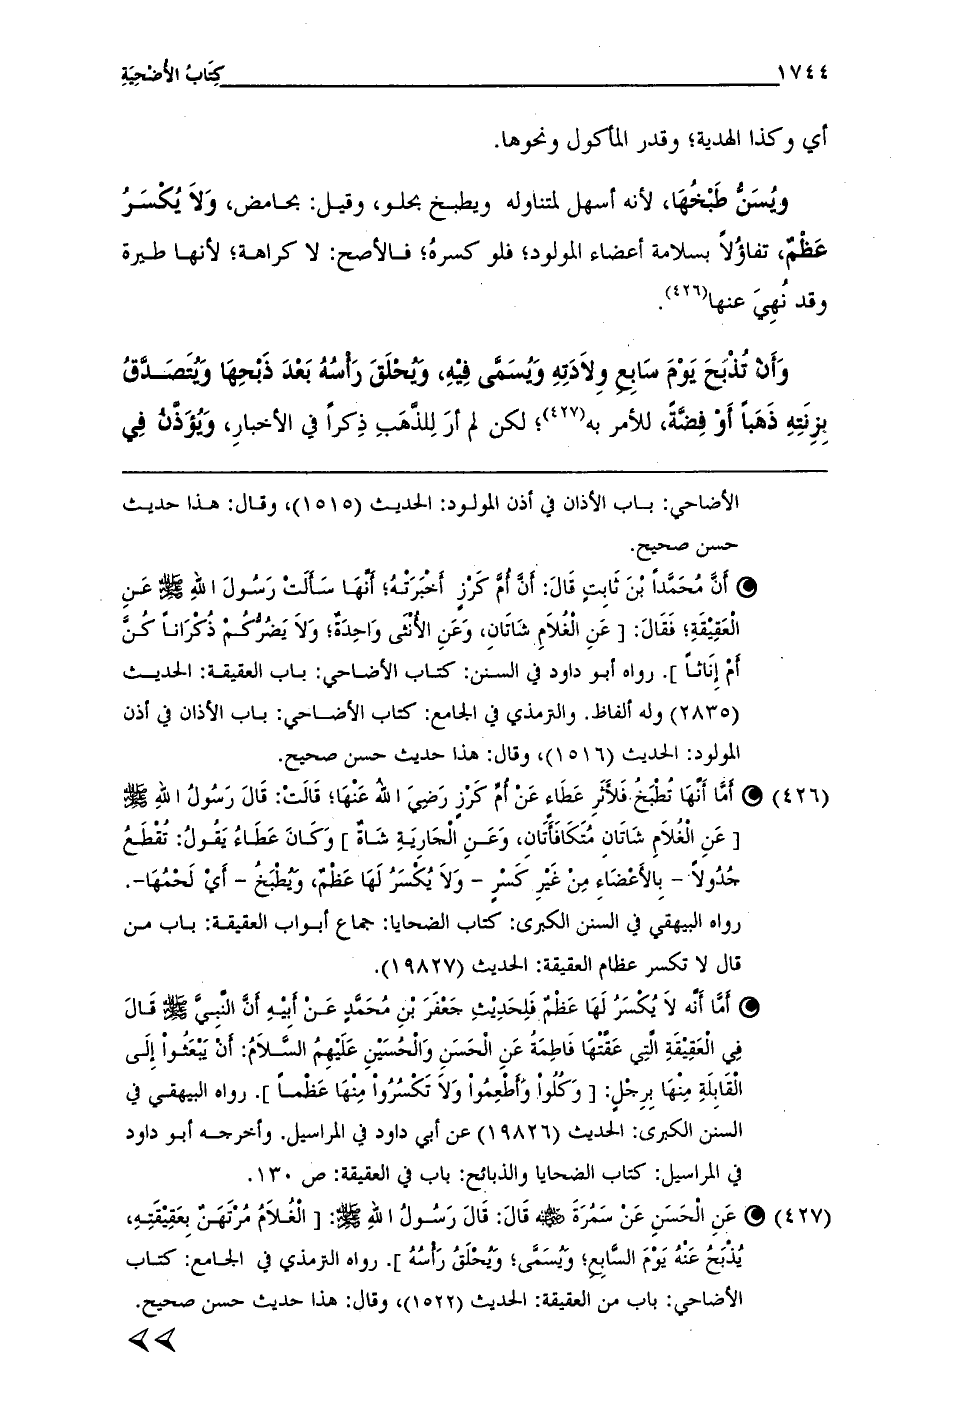 ١٧٤٤ كِتَابُ الأُضْحِيَةِ
أي وكذا الهدية؛ وقدر المأكول ونحوها.
ويُسَنُّ طَبْخُهَا، لأنه أسهل لمتناوله ويطبخ بحلو، وقيل: بحامض، وَلاَ يُكْسَرُ
عَظْمٌ، تفاؤُلاً بسلامة أعضاء المولود؛ فلو كسرهُ؛ فالأصح: لا كراهة؛ لأنها طيرة
وقد نُهِيَ عنها(٤٢٦).
وَأَنْ تُذْبَحَ يَوْمَ سَابِعِ وِلاَدَتِهِ وَيُسَمَّى فِيْهِ، وَيُحْلَقَ رَأْسُهُ بَعْدَ ذَبْحِهَا وَيُتَصَدَّقُ
بِزِنَتِهِ ذَهَباً أَوْ فِضَّةً، للأمر به(٤٢٧)؛ لكن لم أرَ لِلذَّهَبِ ذِكراً في الأخبارِ، وَيُؤَذَّنُ فِي
الأضاحي: باب الأذان في أذن المولود: الحديث (١٥١٥)، وقال: هذا حديث
حسن صحيح.
أَنَّ مُحَمَّداً بْنَ ثَابِتٍ قَالَ: أَنَّ أُمَّ كَرْزٍ أَخْبَرَتْهُ؛ أَنَّهَا سَأَلَتْ رَسُولَ اللهِ ﷺ عَنِ
الْعَقِيْقَةِ؛ فَقَالَ: [ عَنِ الْغُلاَمِ شَاتَانِ، وَعَنِ الأُنْثَى وَاحِدَةٌ؛ وَلاَ يَضُرُّكُمْ ذُكْرَاناً كُنَّ
أَمْ إِنَاثاً ]. رواه أبو داود في السنن: كتاب الأضاحي: باب العقيقة: الحديث
(٢٨٣٥) وله ألفاظ. والترمذي في الجامع: كتاب الأضاحي: باب الأذان في أذن
المولود: الحديث (١٥١٦)، وقال: هذا حديث حسن صحيح.
(٤٢٦) أَمَّا أَنَّهَا تُطْبَخُ فَلأَثَرِ عَطَاءٍ عَنْ أُمِّ كَرْزٍ رَضِيَ اللهُ عَنْهَا؛ قَالَتْ: قَالَ رَسُولُ اللهِ ﷺ
[ عَنِ الْغُلاَمِ شَاتَانِ مُتَكَافَأَتَانِ، وَعَنِ الْجَارِيَةِ شَاةٌ ] وَكَانَ عَطَاءُ يَقُولُ: تُقْطَعُ
جُدُولاً - بِالأَعْضَاءِ مِنْ غَيْرِ كَسْرٍ - وَلاَ يُكْسَرُ لَهَا عَظْمٌ، وَيُطْبَخُ - أَيْ لَحْمُهَا-.
رواه البيهقي في السنن الكبرى: كتاب الضحايا: جماع أبواب العقيقة: باب من
قال لا تكسر عظام العقيقة: الحديث (١٩٨٢٧).
أَمَّا أَنَّه لاَ يُكْسَرُ لَهَا عَظْمٌ فَلِحَدِيْثِ جَعْفَرَ بْنِ مُحَمَّدٍ عَنْ أَبِيْهِ أَنَّ النَّبِيَّ ﷺ قَالَ
فِي الْعَقِيْقَةِ الَّتِي عَقَّتْهَا فَاطِمَةُ عَنِ الْحَسَنِ وَالْحُسَيْنِ عَلَيْهِمُ السَّلاَمُ: أَنْ يَبْعَثُواْ إِلَى
الْقَابِلَةِ مِنْهَا بِرِجْلٍ: [ وَكُلُواْ وَأَطْعِمُواْ وَلاَ تَكْسُرُواْ مِنْهَا عَظْماً ]. رواه البيهقي في
السنن الكبرى: الحديث (١٩٨٢٦) عن أبي داود في المراسيل. وأخرجه أبو داود
في المراسيل: كتاب الضحايا والذبائح: باب في العقيقة: ص ١٣٠.
(٤٢٧) عَنِ الْحَسَنِ عَنْ سَمُرَةَ ﵁ قَالَ: قَالَ رَسُولُ اللهِ ﷺ: [ الْغُلاَمُ مُرْتَهَنٌ بِعَقِيْقَتِهِ،
يُذْبَحُ عَنْهُ يَوْمَ السَّابِعِ؛ وَيُسَمَّى؛ وَيُحْلَقُ رَأْسُهُ ]. رواه الترمذي في الجامع: كتاب
الأضاحي: باب من العقيقة: الحديث (١٥٢٢)، وقال: هذا حديث حسن صحيح.